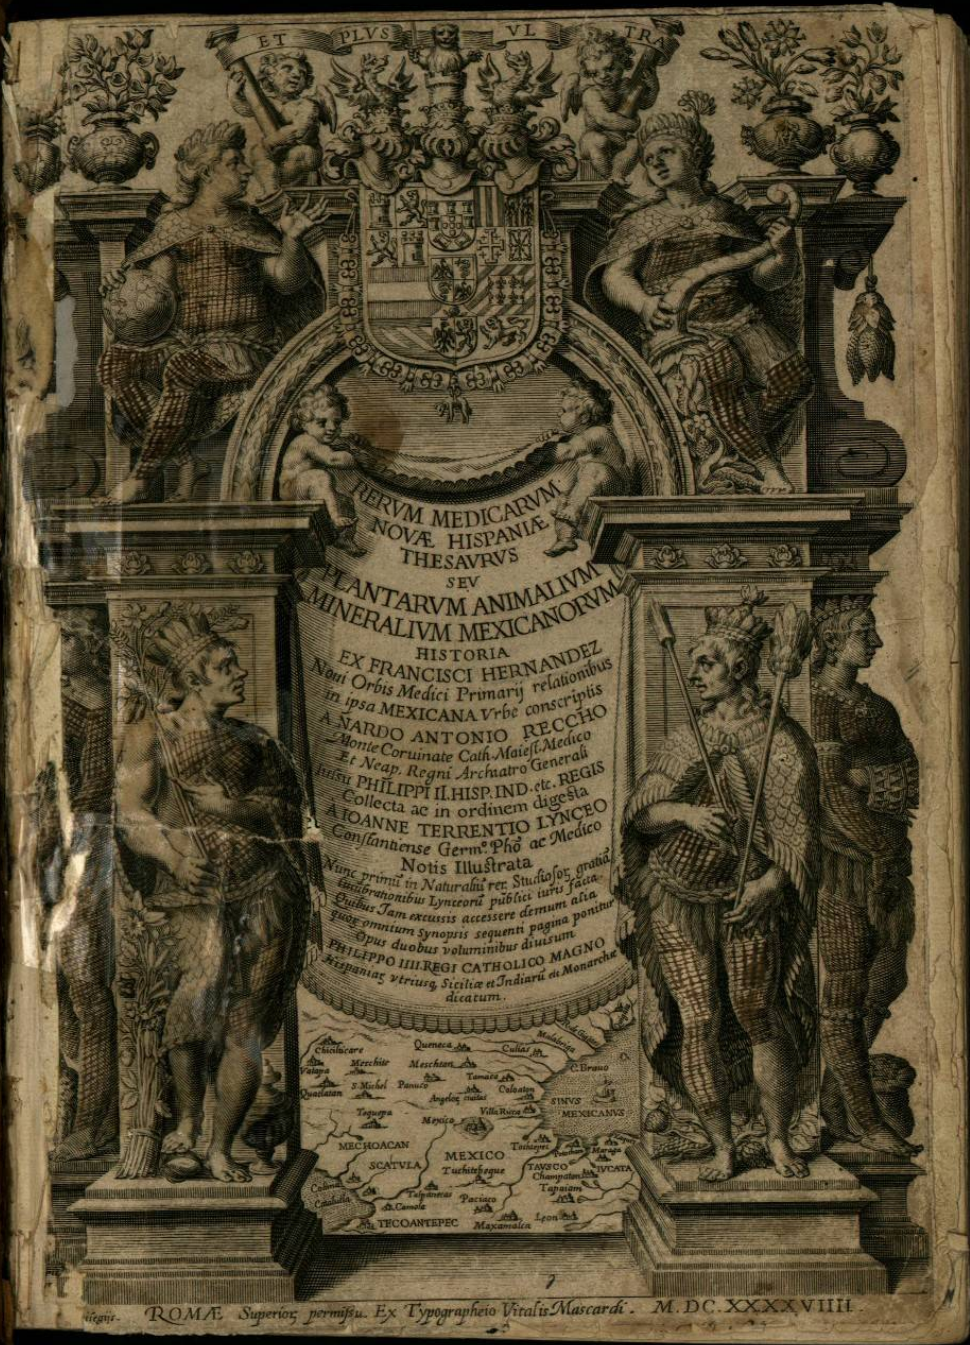 ET PLVS VL TRA
RERVM MEDICARVM
NOVÆ HISPANIÆ
THESAVRVS
SEV
PLANTARVM ANIMALIVM
MINERALIVM MEXICANORVM
HISTORIA
EX FRANCISCI HERNANDEZ
Noui Orbis Medici Primarij relationibus
in ipsa MEXICANA Vrbe conscriptis
A NARDO ANTONIO RECCHO
Monte Coruinate Cath. Maiest. Medico
Et Neap. Regni Archiatro Generali
Iussu PHILIPPI II. HISP. IND. etc. REGIS
Collecta ac in ordinem digesta
A IOANNE TERRENTIO LYNCEO
Constantiense Germ.º Phõ ac Medico
Notis Illustrata
Nunc primũ in Naturaliũ rer. Studiosoꝝ gratiã
lucubrationibus Lynceorũ publici iuris facta.
Quibus Jam excussis accessere demum alia
quoꝝ omnium Synopsis sequenti pagina ponitur
Opus duobus voluminibus diuisum
PHILIPPO IIII. REGI CATHOLICO MAGNO
Hispaniaꝝ vtriusq, Siciliæ et Indiarũ etc Monarchæ
dicatum.
Chicilticare
Queneca
Culias
Meschite
Meschtan
C. Brauo
Quaclatan
S. Michel
Panuco
Tamaco
Angeloꝝ ciuitas
SINVS
MEXICANVS
Villa Ricca
Mexico
MECHOACAN
MEXICO
SCATVLA
Tuchitepeque
TAVSCO
IVCATA
Champaton
Colima
Paciaco
TECOANTEPEC
Leon
ROMÆ Superioꝝ permissu. Ex Typographeio Vitalis Mascardi. M. DC. XXXXVIIII.